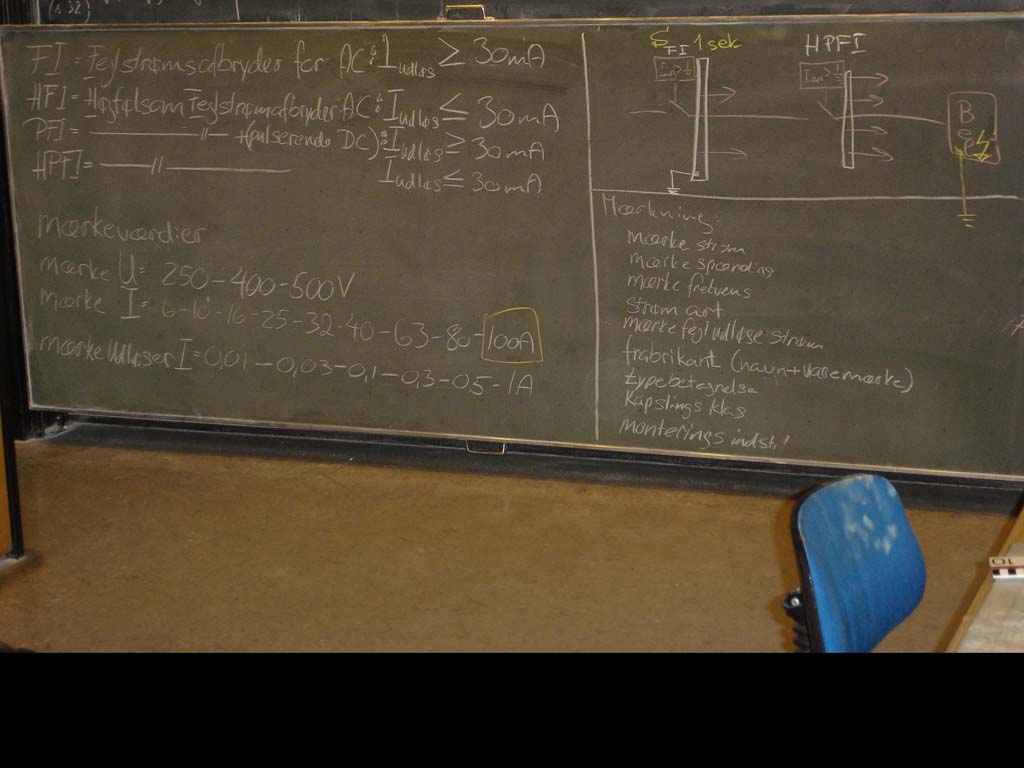 (1.32)
FI = Fejlstrømsafbryder for AC: I udløs ≥ 30mA
HFI = Højfølsom Fejlstrømafbryder AC: I udløs ≤ 30mA
PFI = —————— 〃 — +(pulserende DC): I udløs ≥ 30mA
HPFI = ——— 〃 —————— I udløs ≤ 30mA
mærkeværdier
mærke U = 250 – 400 – 500V
mærke I = 6 – 10 – 16 – 25 – 32 – 40 – 63 – 80 – 100A
mærke Udløser I = 0,01 – 0,03 – 0,1 – 0,3 – 0,5 – 1A
S FI 1 sek
HPFI
Mærkning:
mærke strøm
mærke spænding
mærke frekvens
strøm art
mærke fejl udløse strøm
frabrikant (navn + varemærke)
typebetegnelse
Kapslings klas
monterings indst!